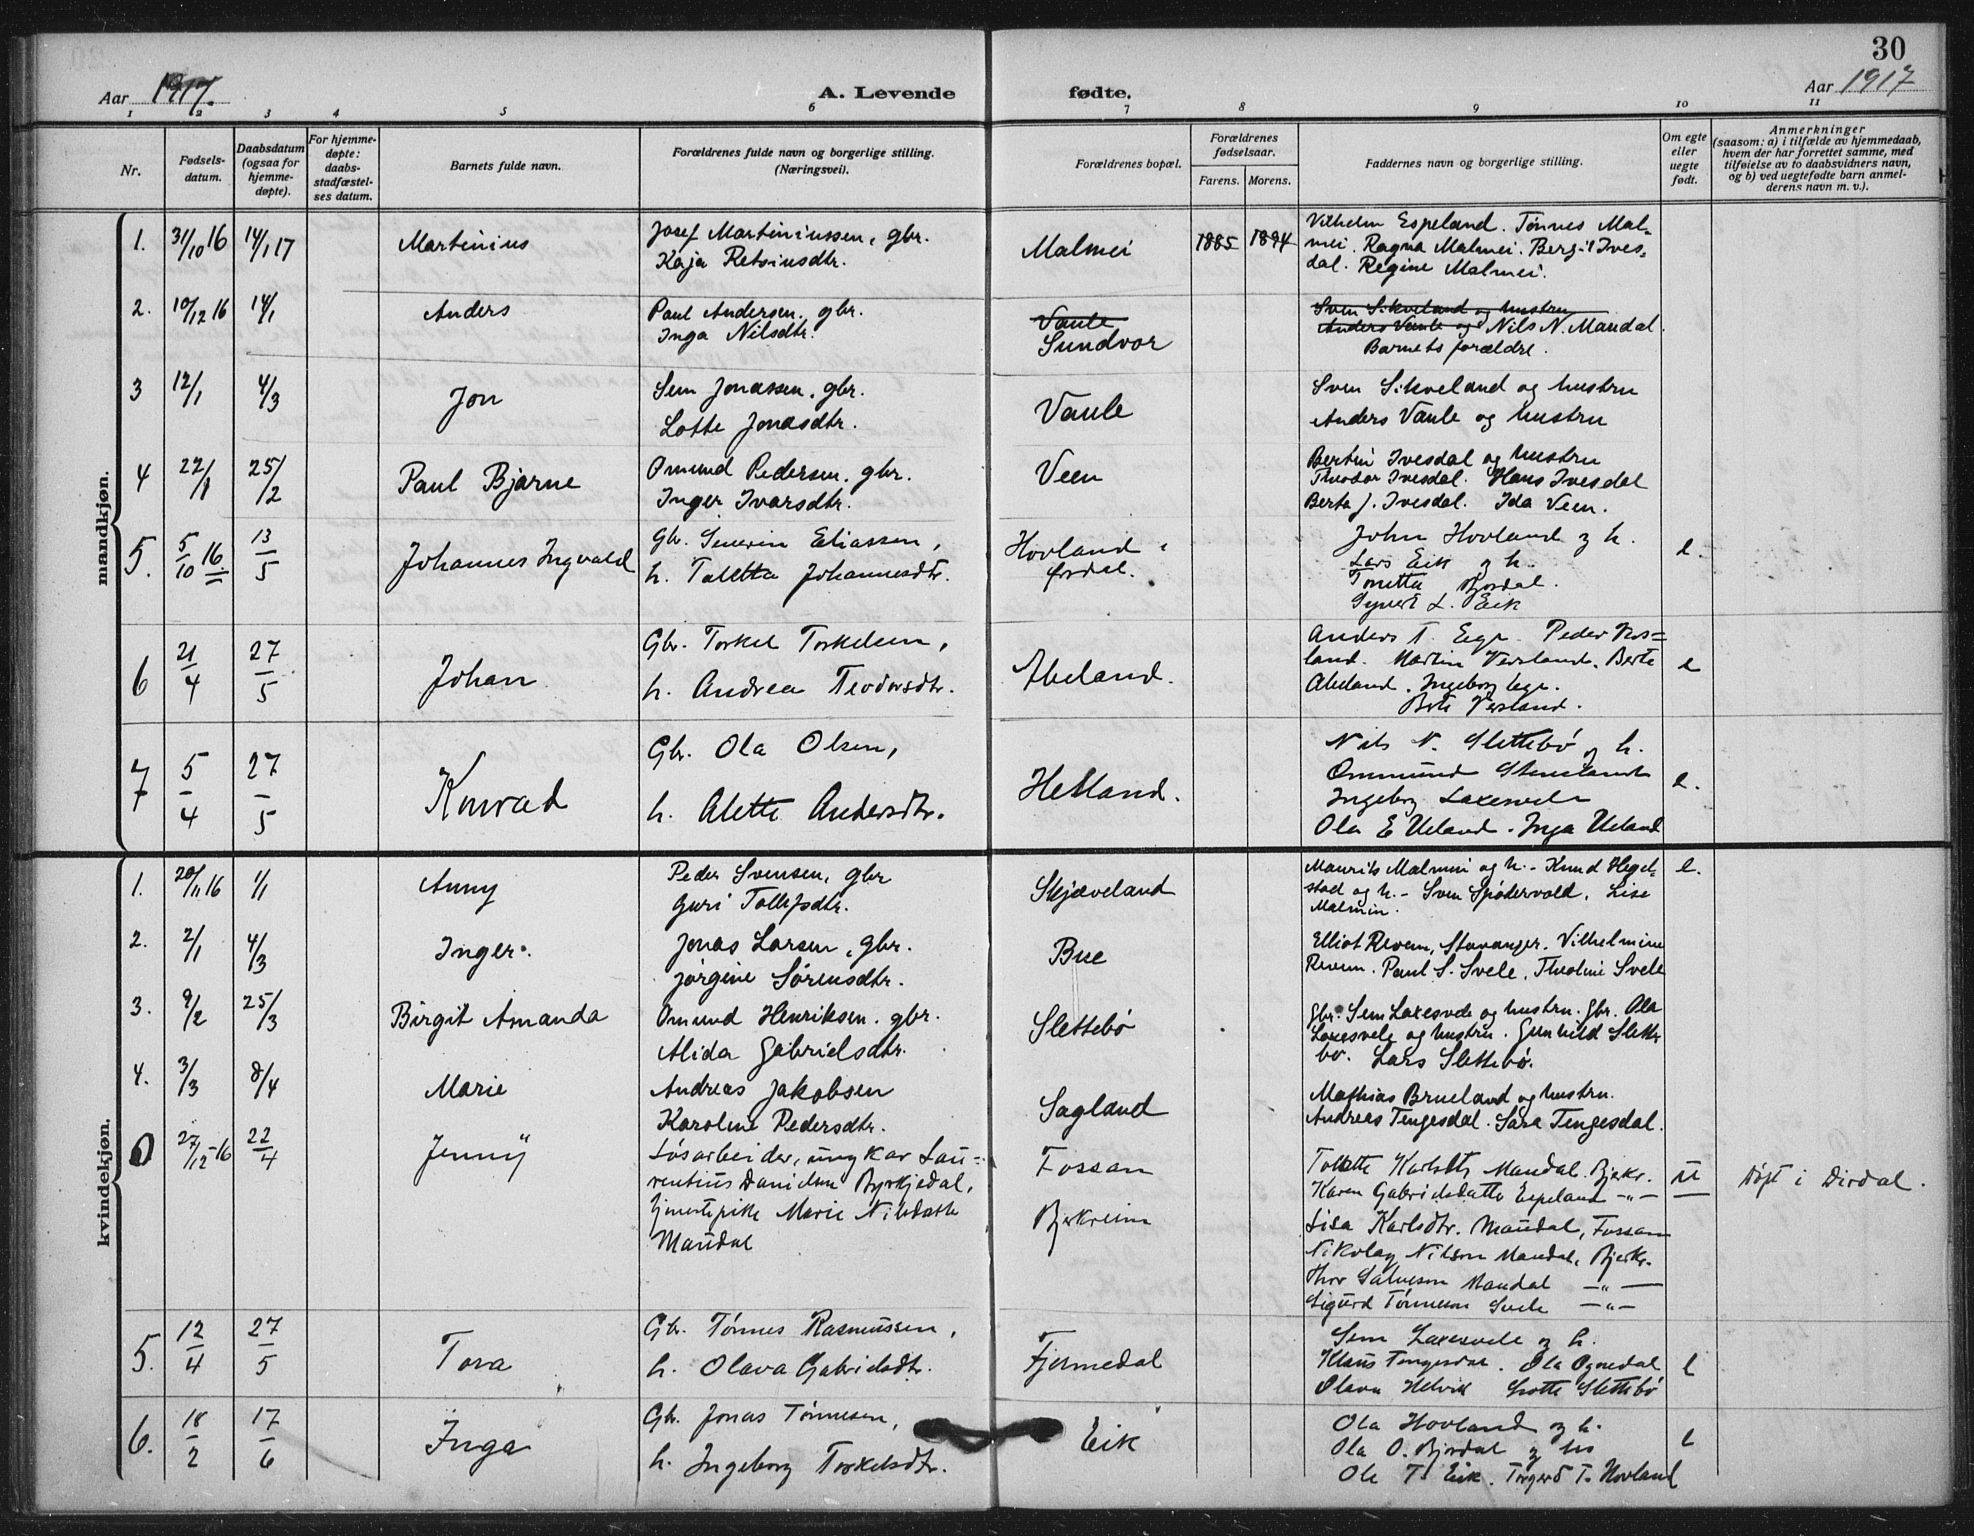 30
Aar 1917. A. Levende fødte. Aar 1917
1 2 3 4 5 6 7 8 9 10 11
Nr.
Fødsels-
datum.
Daabsdatum
(ogsaa for
hjemme-
døpte).
For hjemme-
døpte:
daabs-
stadfæstel-
ses datum.
Barnets fulde navn.
Forældrenes fulde navn og borgerlige stilling.
(Næringsvei).
Forældrenes bopæl.
Forældrenes
fødselsaar.
Farens. Morens.
Faddernes navn og borgerlige stilling.
Om egte
eller
uegte
født.
Anmerkninger
(saasom: a) i tilfælde av hjemmedaab,
hvem der har forrettet samme, med
tilføielse av to daabsvidners navn,
og b) ved uegtefødte barn anmel-
derens navn m. v.).
mandkjøn.
1. 31/10 16 14/1 17 Martinius
Josef Martiniussen, gbr.
Kaja Retsiusdtr.
Malmei 1885 1894
Vilhelm Espeland. Tønnes Mal-
mei. Ragna Malmei. Bergit Ives-
dal. Regine Malmei.
2. 10/12 16 14/1 Anders
Paul Andersen, gbr.
Inga Nilsdtr.
Vaule
Sundvor
Sven Sikveland og hustru
Anders Vaule og Nils N. Maudal.
Barnets forældre.
3 12/1 4/3 Jon
Sem Jonassen, gbr.
Lotte Jonasdtr.
Vaule
Sven Sikveland og hustru
Anders Vaule og hustru
4 22/1 25/2 Paul Bjarne
Omund Pedersen, gbr.
Inger Ivarsdtr.
Veen
Bertin Ivesdal og hustru
Theodor Ivesdal. Hans Ivesdal
Berta J. Ivesdal. Ida Veen.
5. 5/10 16 13/5 Johannes Ingvald
Gbr. Severin Eliassen,
h. Taletta Johannesdtr.
Hovland
Ørsdal.
John Hovland og h.
Lars Eik og h.
Tonetta Bjordal.
Syvert L. Eik
e.
6 21/4 27/5 Johan
Gbr. Torkel Torkelsen,
h. Andrea Teodorsdtr.
Aveland.
Anders T. Ege. Peder Ros-
land. Martin Versland. Berte
Aveland. Ingeborg Ege.
Berte Versland.
e
7 5/4 27/5 Konrad
Gbr. Ola Olsen,
h. Alette Andersdtr.
Hetland.
Nils N. Slettebø og h.
Ommund
Ingeborg Laxesvele
Ola E Ueland. Inga Ueland
e.
kvindekjøn.
1. 20/11 16 1/1 Anny
Peder Svensen, gbr
Guri Tollefsdtr.
Skjæveland
Maurits Malmin og h. - Knud Hegel-
stad og h. - Sven Spødervold. Lise
Malmin.
e.
2. 2/1 4/3 Inger.
Jonas Larsen, gbr.
Jørgine Sørensdtr.
Bue
Elliot Revem, Stavanger. Vilhelmine
Revem. Paul S. Svele. Theoline Svele
3. 9/2 25/3 Birgit Amanda
Omund Henriksen. gbr.
Alida Gabrielsdtr.
Slettebø
Gbr. Sem Laxesvele og hustru. Gbr. Ola
Laxesvele og hustru. Gunhild Slette
bø. Lars Slettebø.
4. 3/3 8/4 Marie
Andreas Jakobsen
Karoline Pedersdtr.
Sagland
Mathias Brueland og hustru.
Andreas Tengesdal. Sara Tengesdal.
0 27/12-16 22/4 Jenny
Løsarbeider, ungkar Lau-
rentius Danielsen Byrkjedal,
tjenestepike Marie Nilsdatter
Maudal
Fossan
Bjerkreim
Tolette Karlsdtr Maudal. Bjerkr.
Karen Gabrielsdatter Espeland -"-
Lisa Karlsdtr. Maudal, Fossan
Nikolay Nilsen Maudal, Bjerkr.
Thor Salveson Maudal -"-
Sigurd Tønneson Svele -"-
u
Døpt i Dirdal.
5. 12/4 27/5 Tora
Gbr. Tønnes Rasmussen,
h. Olava Gabrielsdtr.
Fjermedal
Sem Laxesvele og h.
Klaus Tengesdal. Ola Ognedal
Olava Helvik Lotte Slettebø
e
6. 18/2 17/6 Inga
Gbr. Jonas Tønnesen,
h. Ingeborg Torkelsdtr.
Eik
Ola Hovland og h.
Ola O. Bjordal og h
Ole T. Eik. Torger T. Hovland
e